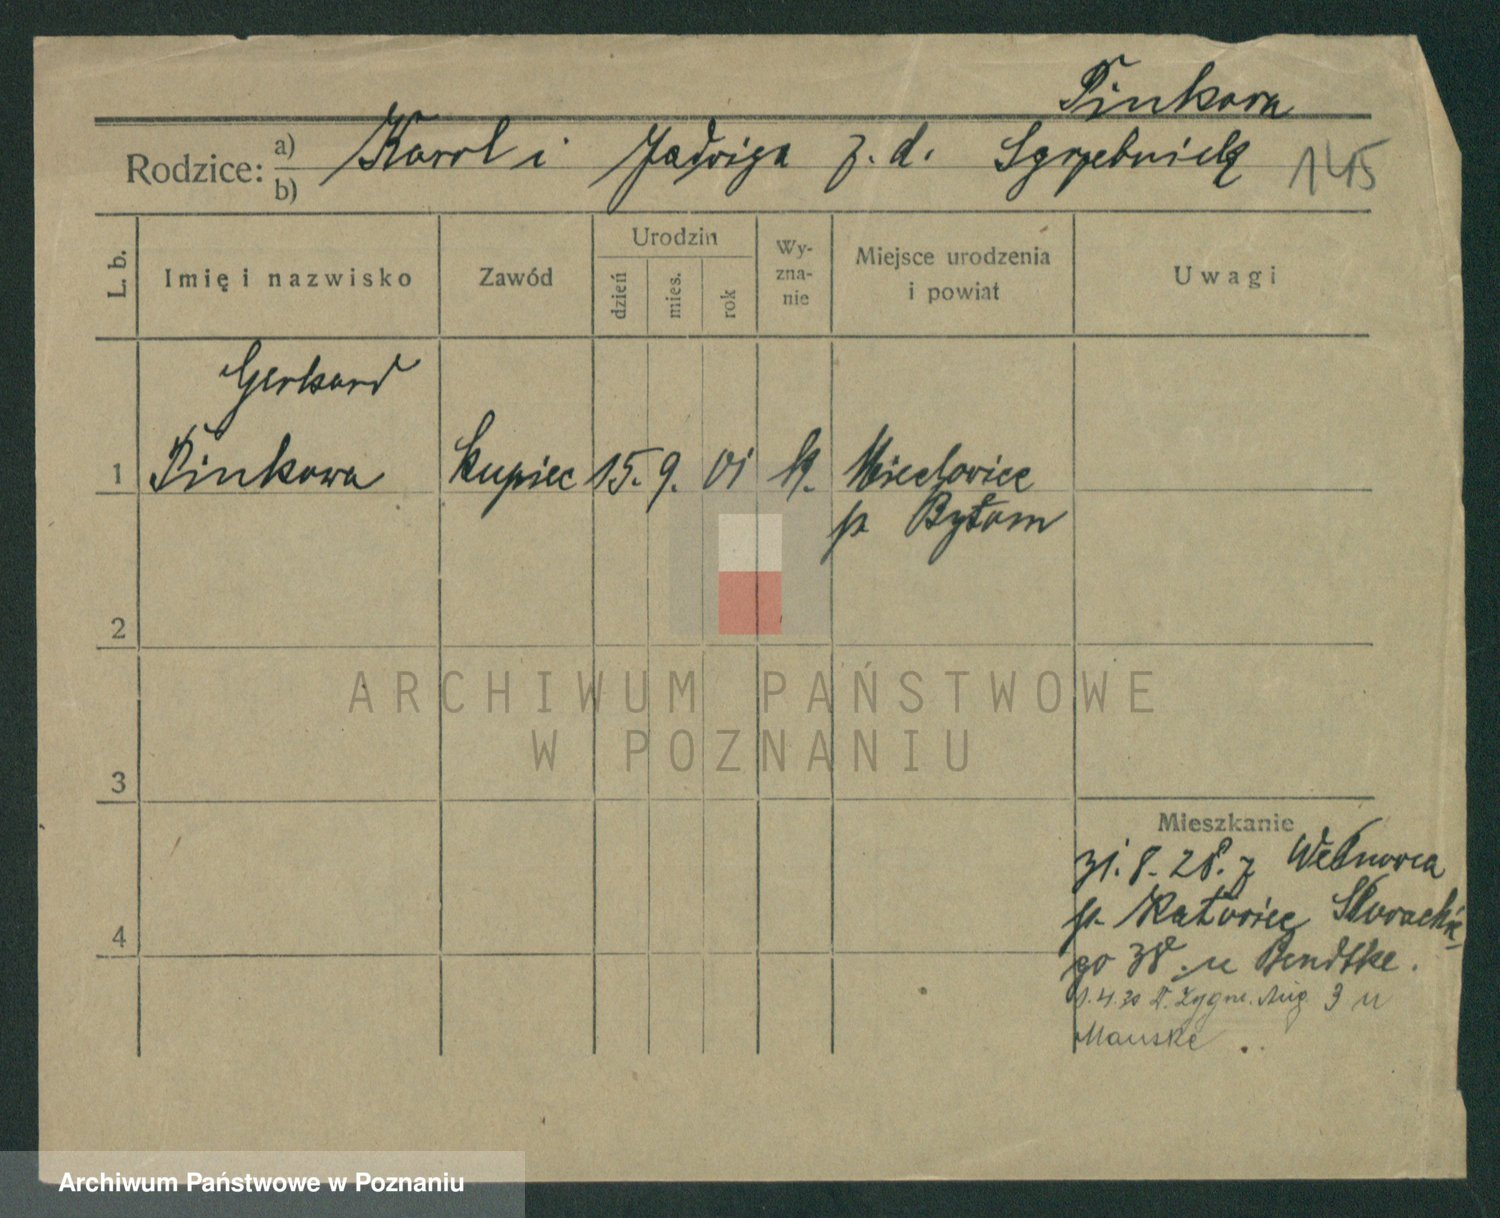 Pinkawa
Rodzice: a) Karol i Jadwiga z. d.
b)
145
L. b. Imię i nazwisko Zawód Urodzin dzień mies. rok Wy-zna-nie Miejsce urodzenia i powiat Uwagi
Gerhard
1 Pinkawa kupiec 15. 9. 01 k. Miechowice
p. Bytom
2
3
4
Mieszkanie
31.8.28. z Wełnowca
p. Katowice Słowackie-
go 38. u Bendtke.
1.4.30 Zygm. Aug. 3 u
Manske
ARCHIWUM PAŃSTWOWE
W POZNANIU
Archiwum Państwowe w Poznaniu